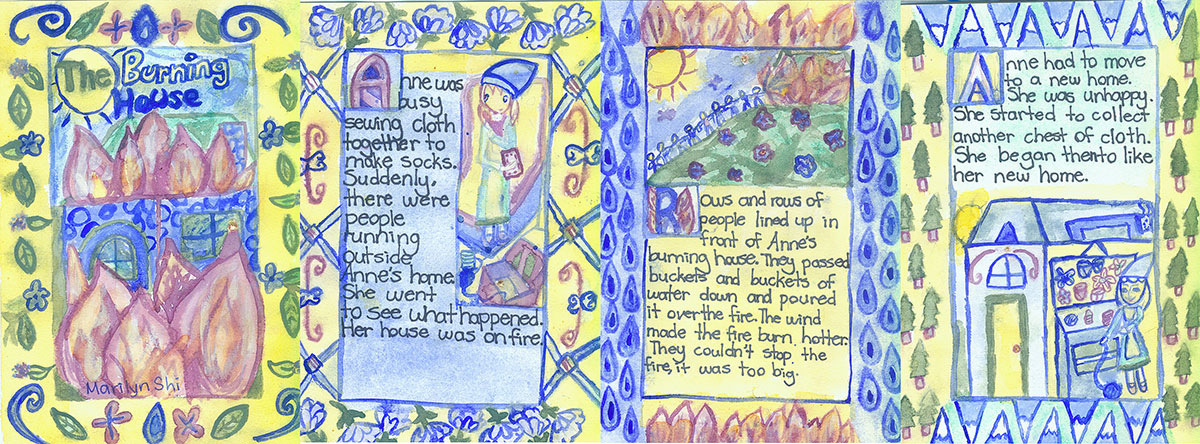 The Burning
House
Marilyn Shi
Anne was
busy
sewing cloth
together to
make socks.
Suddenly,
there were
people
running
outside
Anne's home.
She went
to see what happened.
Her house was on fire.
Rows and rows of
people lined up in
front of Anne's
burning house. They passed
buckets and buckets of
water down and poured
it over the fire. The wind
made the fire burn hotter.
They couldn't stop the
fire, it was too big.
Anne had to move
to a new home.
She was unhappy.
She started to collect
another chest of cloth.
She began thento like
her new home.